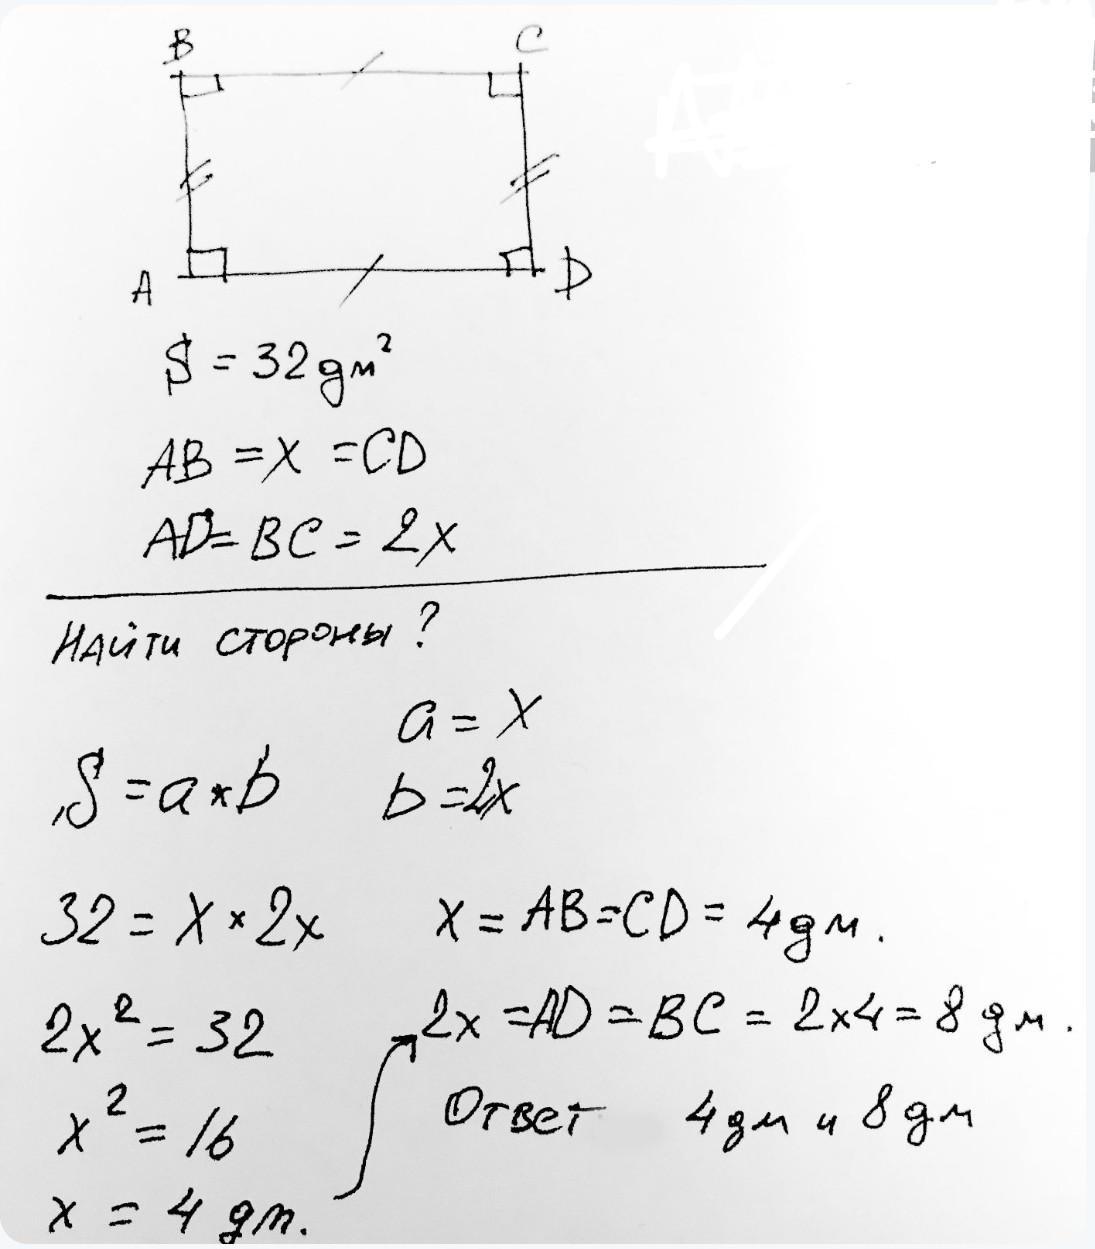 B C
A D
S = 32 дм²
AB = x = CD
AD = BC = 2x
Найти стороны?
a = x
S = a * b b = 2x
32 = x × 2x x = AB = CD = 4 дм.
2x² = 32 2x = AD = BC = 2x4 = 8 дм.
x² = 16 Ответ 4 дм и 8 дм
x = 4 дм.